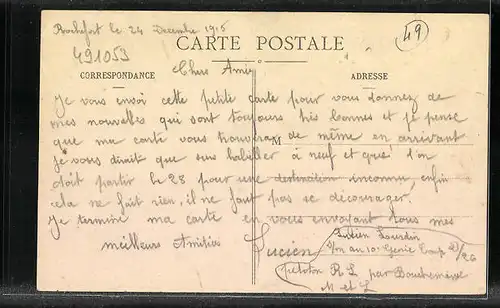 Rochefort le 24 Decembre 1915
49
491053
CARTE POSTALE
CORRESPONDANCE
ADRESSE
Chers Amis
Je vous envoi cette petite carte pour vous donnez de
mes nouvelles qui sont toujours très bonnes et je pense
que ma carte vous trouvera de même en arrivant
M
Je vous dirait que suis habiller à neuf et que l'on
doit partir le 28 pour une destination inconnu, enfin
cela ne fait rien, il ne faut pas se décourager.
Je termine ma carte en vous envoyant tous mes
meilleurs Amitiés
Lucien
Lucien Lourdin
au 10e Génie Comp
peloton R L par
M et L